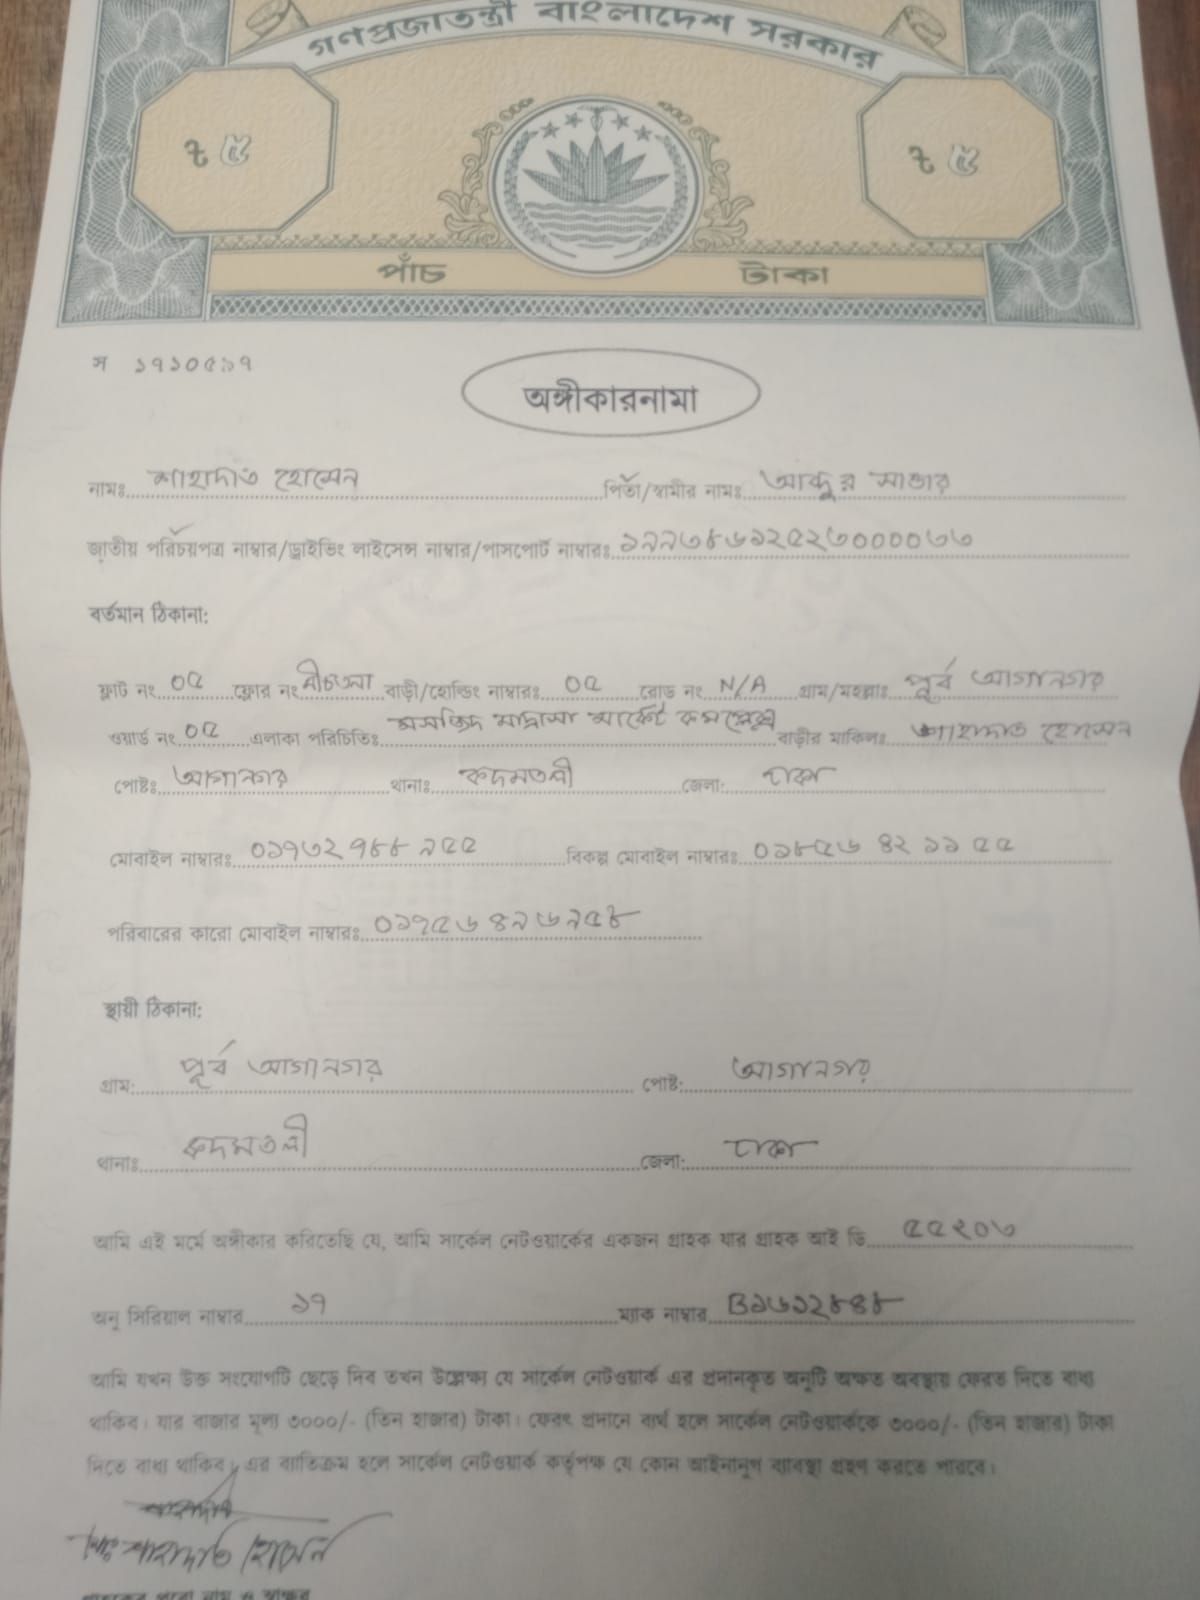 গণপ্রজাতন্ত্রী বাংলাদেশ সরকার
৳ ৫ ৳ ৫
পাঁচ টাকা
স ১৭১০৫১৭
অঙ্গীকারনামা
নামঃ শাহাদাত হোসেন পিতা/স্বামীর নামঃ আব্দুর সাত্তার
জাতীয় পরিচয়পত্র নাম্বার/ড্রাইভিং লাইসেন্স নাম্বার/পাসপোর্ট নাম্বারঃ
বর্তমান ঠিকানা:
ফ্লাট নং ০৫ ফ্লোর নং নীচতলা বাড়ী/হোল্ডিং নাম্বারঃ ০৫ রোড নং N/A গ্রাম/মহল্লাঃ পূর্ব আগানগর
ওয়ার্ড নং ০৫ এলাকা পরিচিতিঃ মসজিদ মাদ্রাসা মার্কেট কমপ্লেক্স বাড়ীর মালিকঃ শাহাদাত হোসেন
পোষ্টঃ আগানগর থানাঃ কদমতলী জেলা: ঢাকা
মোবাইল নাম্বারঃ ০১৭৩২৭৮৮৯৫৫ বিকল্প মোবাইল নাম্বারঃ ০১৮৫৬ ৪২ ১১ ৫৫
পরিবারের কারো মোবাইল নাম্বারঃ ০১৭৫৬৪৯৬৯৫৮
স্থায়ী ঠিকানা:
গ্রাম: পূর্ব আগানগর পোষ্ট: আগানগর
থানাঃ কদমতলী জেলা: ঢাকা
আমি এই মর্মে অঙ্গীকার করিতেছি যে, আমি সার্কেল নেটওয়ার্কের একজন গ্রাহক যার গ্রাহক আই ডি ৫৫২০৩
অনু সিরিয়াল নাম্বার ১৭ ম্যাক নাম্বার B১৬১২৮৪৮
আমি যখন উক্ত সংযোগটি ছেড়ে দিব তখন উল্লেক্ষ্য যে সার্কেল নেটওয়ার্ক এর প্রদানকৃত অনুটি অক্ষত অবস্থায় ফেরত দিতে বাধ্য
থাকিব। যার বাজার মূল্য ৩০০০/- (তিন হাজার) টাকা। ফেরৎ প্রদানে ব্যর্থ হলে সার্কেল নেটওয়ার্ককে ৩০০০/- (তিন হাজার) টাকা
দিতে বাধ্য থাকিব। এর ব্যতিক্রম হলে সার্কেল নেটওয়ার্ক কর্তৃপক্ষ যে কোন আইনানুগ ব্যবস্থা গ্রহণ করতে পারবে।
মোঃ শাহাদাত হোসেন